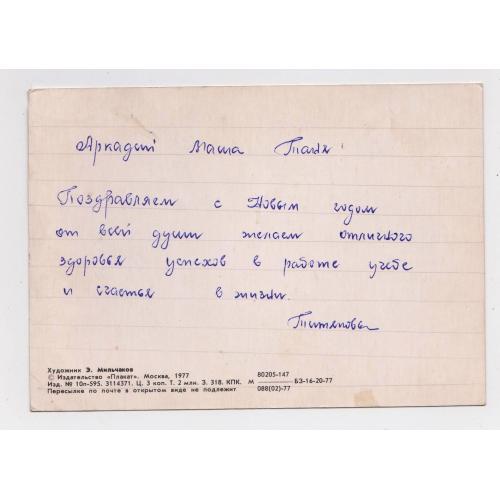 Аркадий Маша Таня
Поздравляем с Новым годом
от всей души желаем отличного
здоровья успехов в работе учебе
и счастья в жизни.
Титяповы
Художник Э. Мильчаков
© Издательство «Плакат». Москва, 1977
Изд. № 10п-595. 3114371. Ц. 3 коп. Т. 2 млн. З. 318. КПК. М 80205-147 БЗ-16-20-77
088(02)-77
Пересылке по почте в открытом виде не подлежит